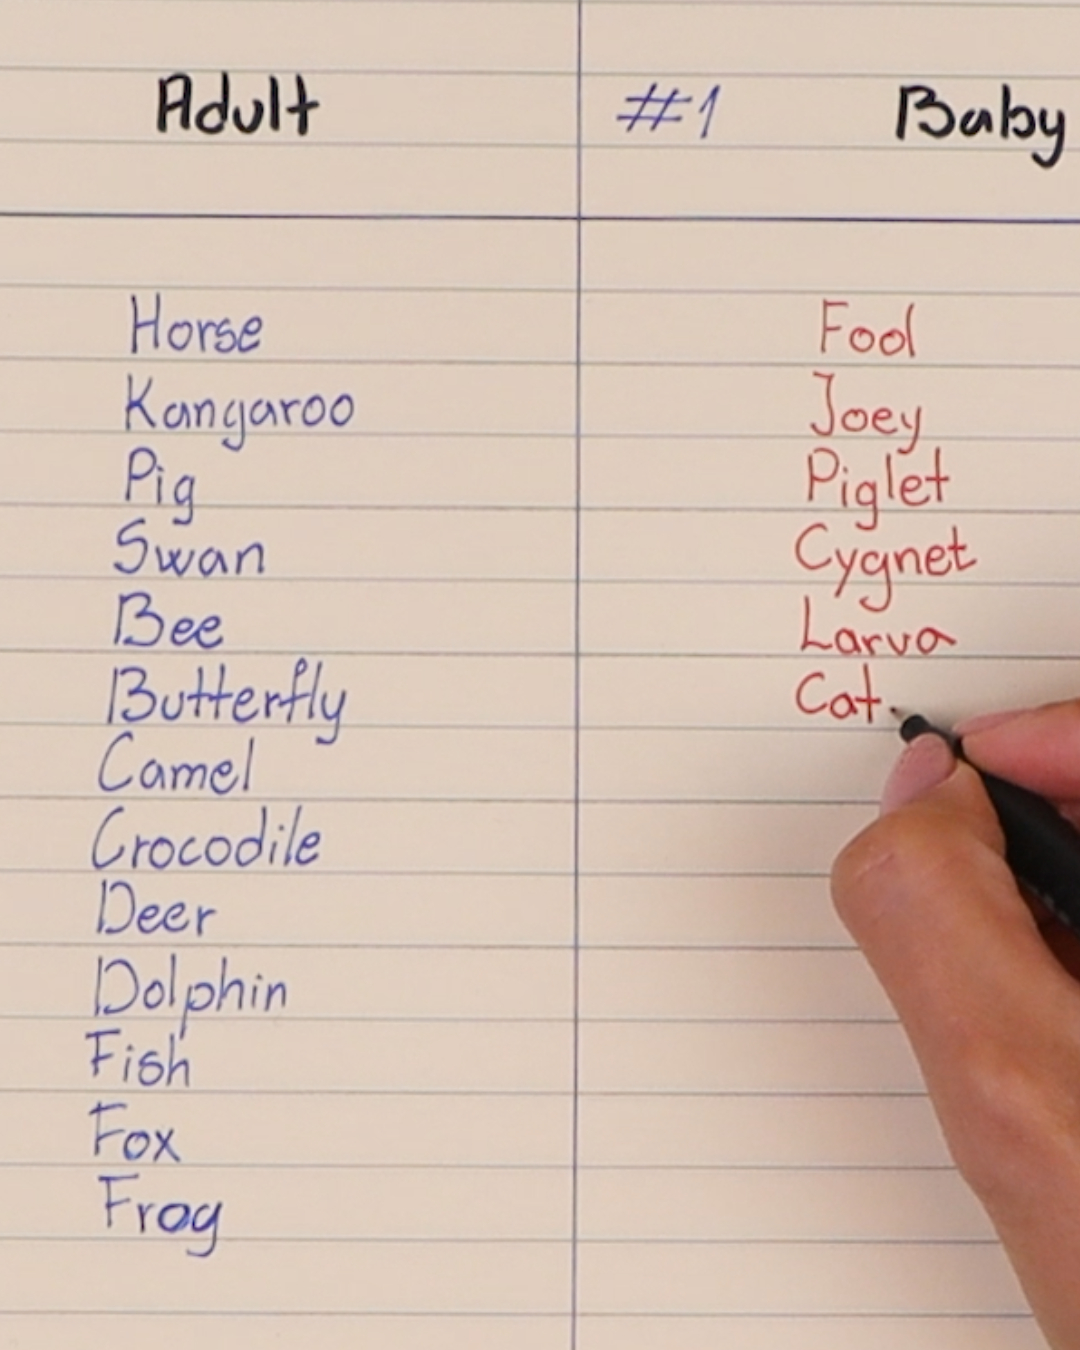 Adult #1 Baby
Horse Fool
Kangaroo Joey
Pig Piglet
Swan Cygnet
Bee Larva
Butterfly Cat
Camel
Crocodile
Deer
Dolphin
Fish
Fox
Frog